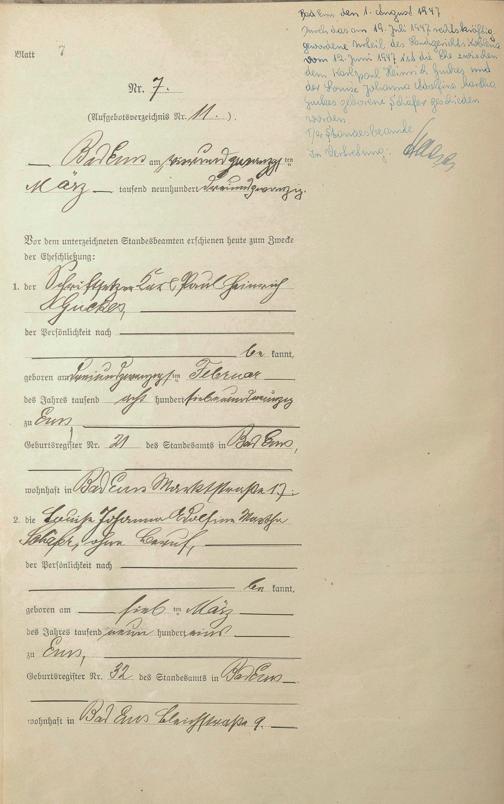 Bad Ems den 1. August 1947
Durch das am 19. Juli 1947 rechtskräftig
gewordene Urteil des Landgerichts Koblenz
vom 12. Juni 1947 ist die Ehe zwischen
dem Karl Paul Heinrich Guckes und
der Louise Johanna Adolfine Martha
Guckes geborene Schäfer geschieden
worden.
Der Standesbeamte
In Vertretung:
Blatt 7
Nr. 7.
(Aufgebotsverzeichnis Nr. 11.).
Bad Ems am vierundzwanzigsten
März tausend neunhundert dreiundzwanzig.
Vor dem unterzeichneten Standesbeamten erschienen heute zum Zwecke
der Eheschließung:
1. der Schriftsetzer Karl Paul Heinrich
Guckes,
der Persönlichkeit nach
be kannt,
geboren am dreiundzwanzigsten Februar
des Jahres tausend acht hundert siebenundneunzig
zu Ems,
Geburtsregister Nr. 21 des Standesamts in Bad Ems,
wohnhaft in Bad Ems Marktstraße 17.
2. die Louise Johanna Adolfine Martha
Schäfer, ohne Beruf,
der Persönlichkeit nach
be kannt,
geboren am ten März
des Jahres tausend neun hundert eins
zu Ems,
Geburtsregister Nr. 32 des Standesamts in Bad Ems
wohnhaft in Bad Ems Bleichstraße 9.